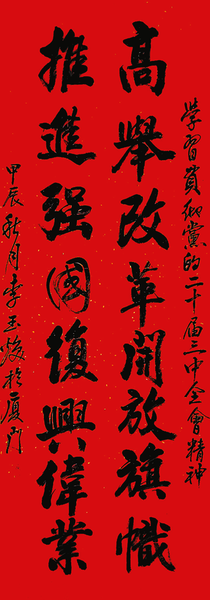 學習貫彻黨的二十届三中全會精神
高舉改革開放旗幟
推進强國復興偉業
甲辰秋月李玉焕於厦门